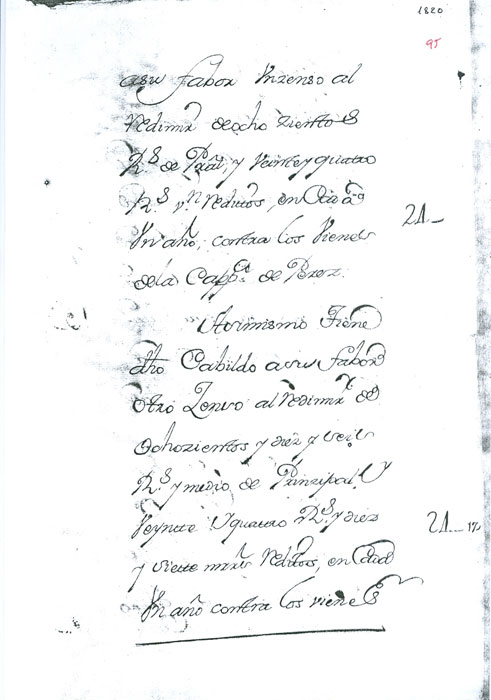 1820
95
asu fabor Vnzenso al
Redimir deocho zientos
R.s de Pral, y Veinte y quatro
R.s v.n Reditos, en Cada
Vn año, contra los Vienes 24_
dela Capp.a de Perez.
Assimismo Tiene
dho Cabildo a su fabor
otro Zenso al Redimir de
Ochozientos y diez y seis
R.s y medio de Prinzipal, y
Veynte y quatro R.s y diez 24_17
y siete mrs Reditos, en Cada
Vn año contra los vienes